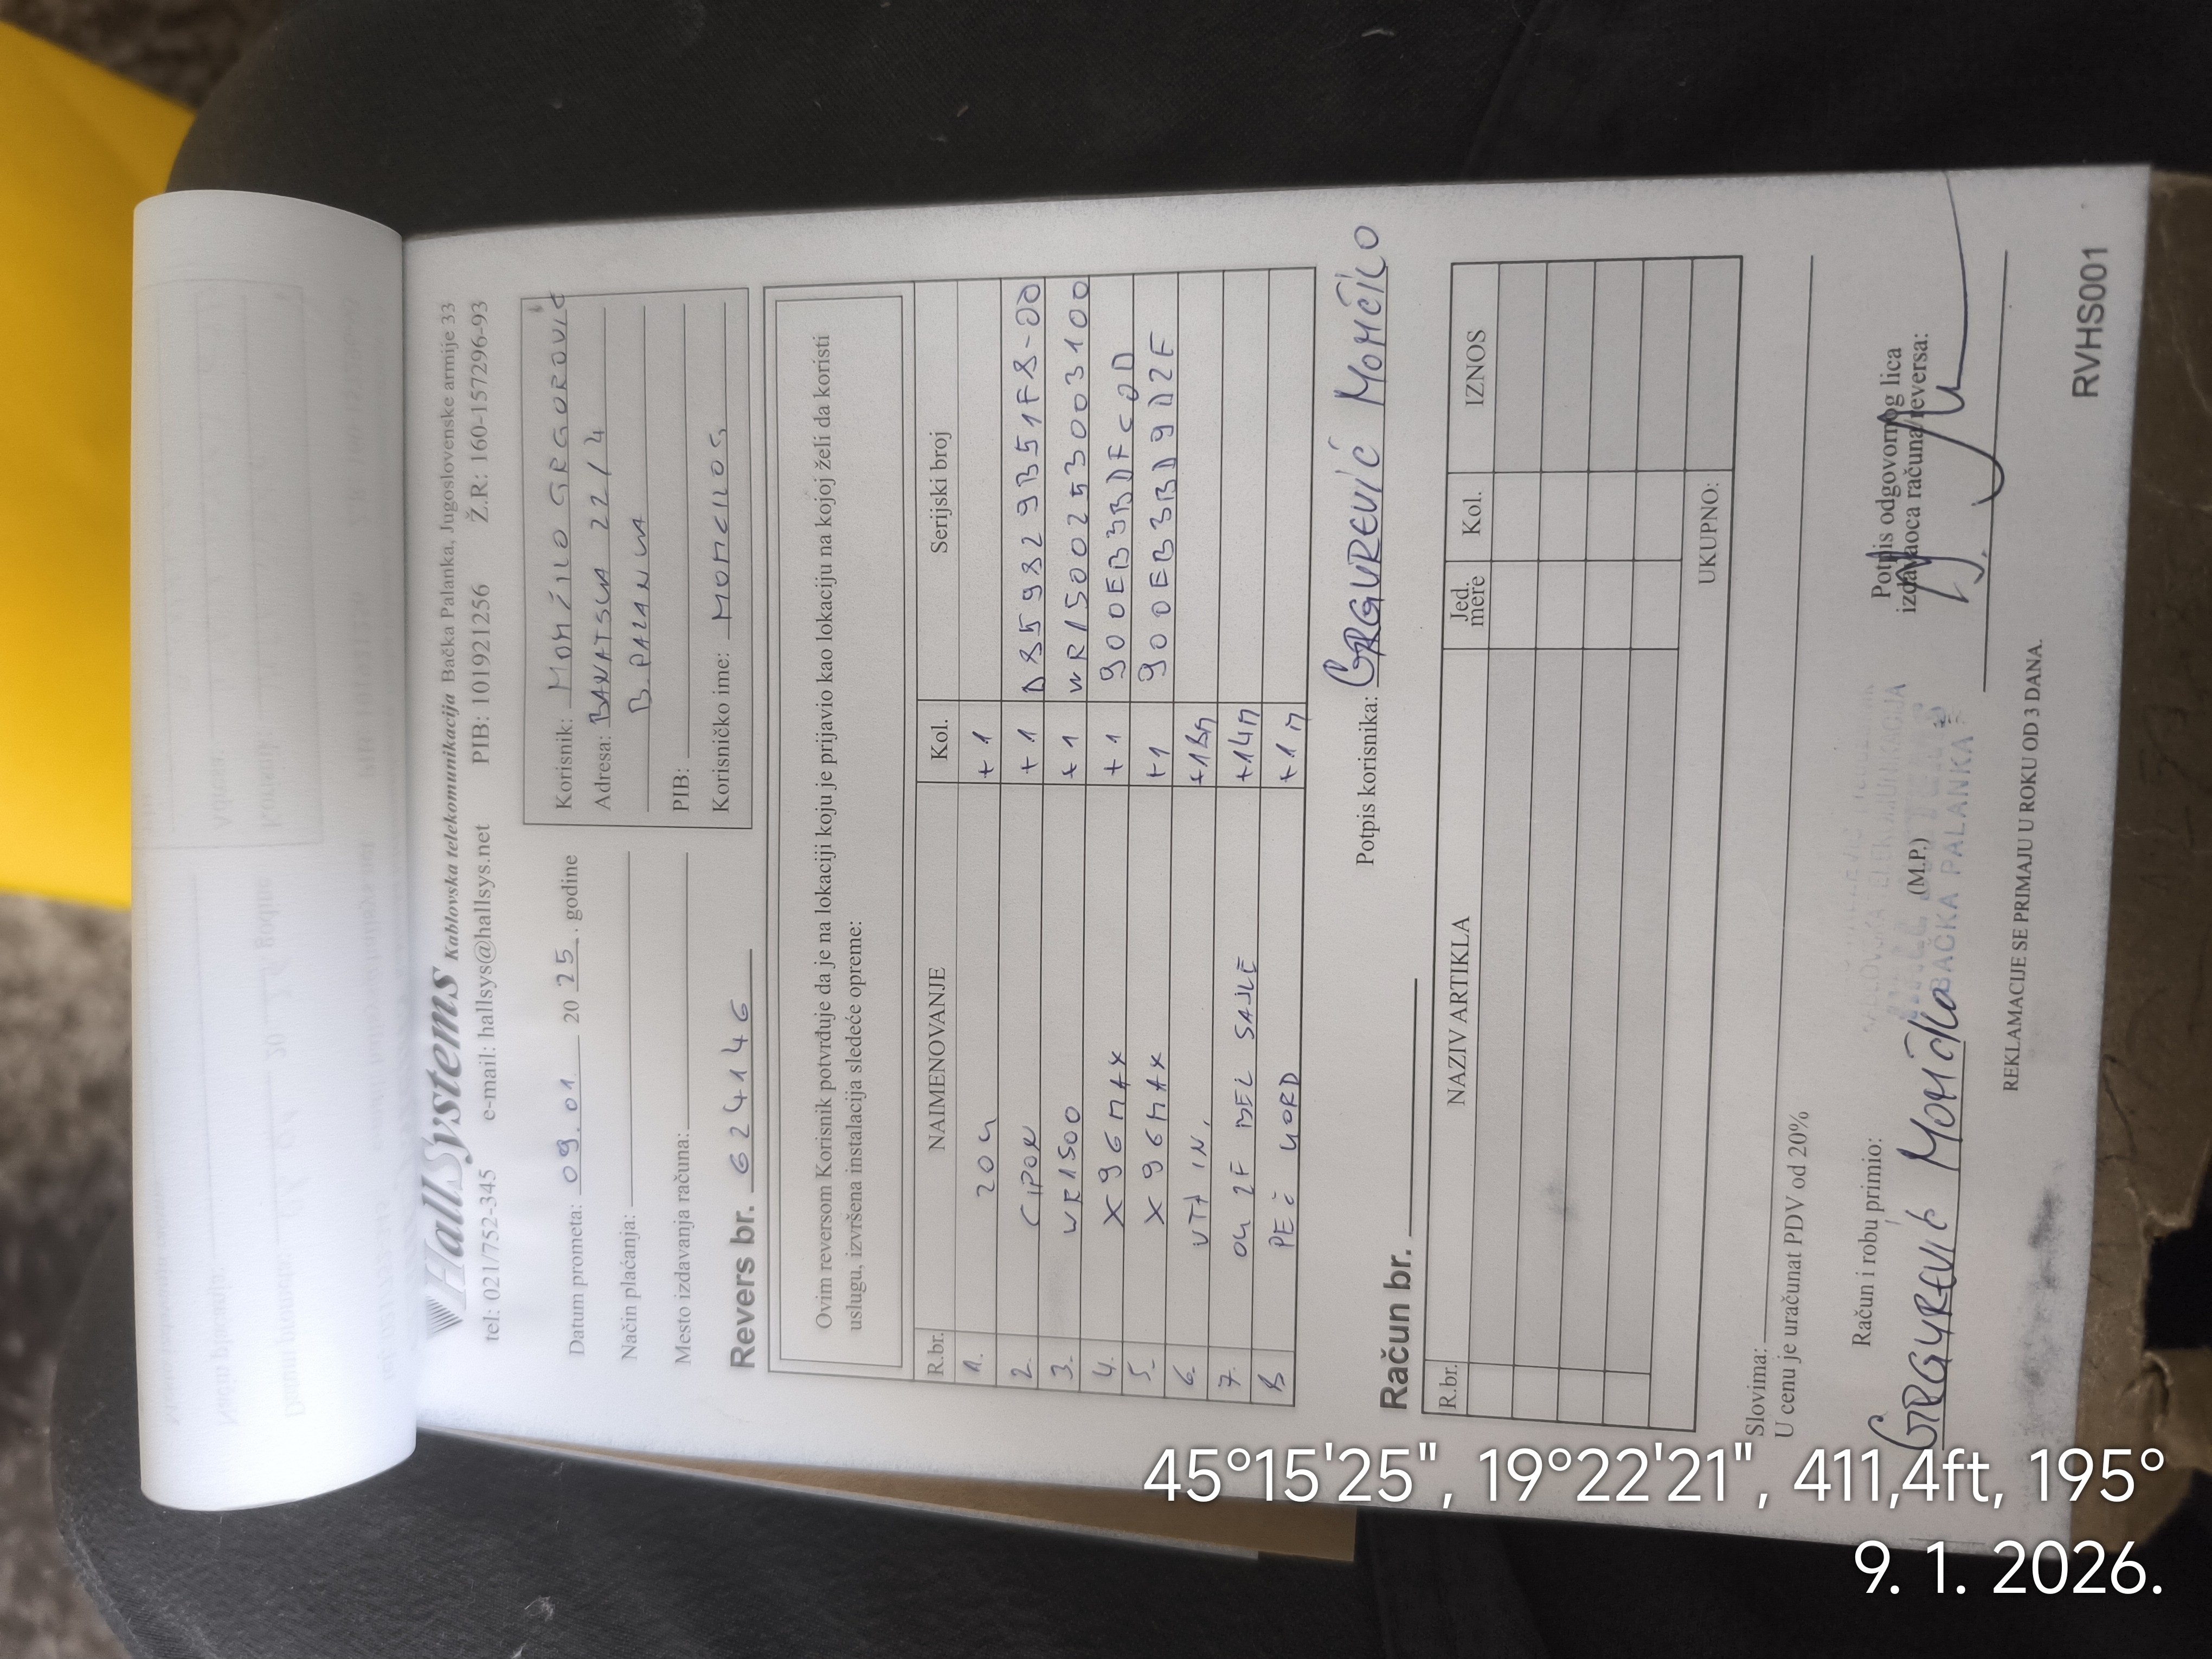 HallSystems Kablovska telekomunikacija Bačka Palanka, Jugoslovenske armije 33
tel: 021/752-345 e-mail: hallsys@hallsys.net PIB: 101921256 Ž.R.: 160-157296-93
Datum prometa: 09.01 2025. godine
Način plaćanja:
Mesto izdavanja računa:
Revers br. 624146
Korisnik: MOMŽILO GRGOROVIĆ
Adresa: BANATSKA 22/4
B. PALANKA
PIB:
Korisničko ime: MOMCILOG
Ovim reversom Korisnik potvrđuje da je na lokaciji koju je prijavio kao lokaciju na kojoj želi da koristi
uslugu, izvršena instalacija sledeće opreme:
R.br. NAIMENOVANJE Kol. Serijski broj
1. 204 +1
2. CIPON +1 D859829B51F8-00
3. WR1500 +1 WR15002530003100
4. X96MAX +1 900EB3BDFC0D
5. X96MAX +1 900EB3BD9D2E
6. IN.
7. 2F SAJLE +14M
8 +1M
Potpis korisnika: GRGUREVIĆ MOMČILO
Račun br.
R.br. NAZIV ARTIKLA Jed. mere Kol. IZNOS
UKUPNO:
Slovima:
U cenu je uračunat PDV od 20%
Račun i robu primio:
GRGUREVIĆ Momčilo
(M.P.)
BAČKA PALANKA
Potpis odgovornog lica
izdavaoca računa/reversa:
REKLAMACIJE SE PRIMAJU U ROKU OD 3 DANA.
RVHS001
45°15'25", 19°22'21", 411,4ft, 195°
9. 1. 2026.